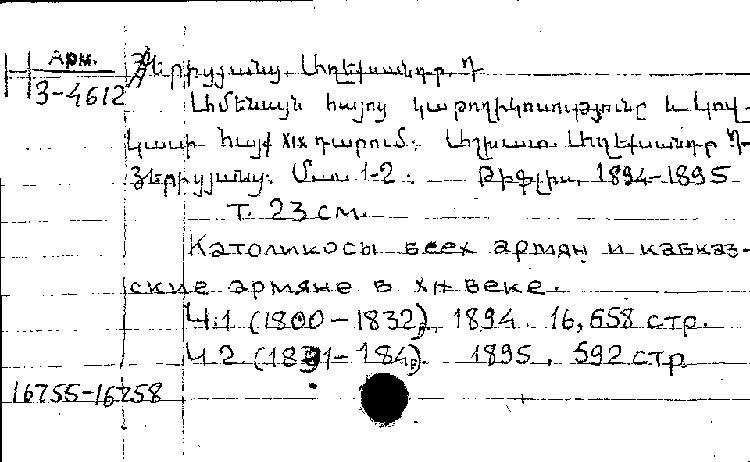 Арм.
H Երիցյանց Աղեքսանդր Դ
3-4612
Ամենայն հայոց կաթողիկոսությունը և Կով-
կասի հայք XIX դարում: Աշխատ. Աղեքսանդր Դ-
Երիցյանց: Մաս. 1-2: Թիֆլիս, 1894-1895
т. 23 см.
Католикосы всех армян и кавказ-
ские армяне в веке.
Ч.1 (1800-1832), 1894. 16,658 стр.
Ч.2. 1895. 592 стр
16255-16258